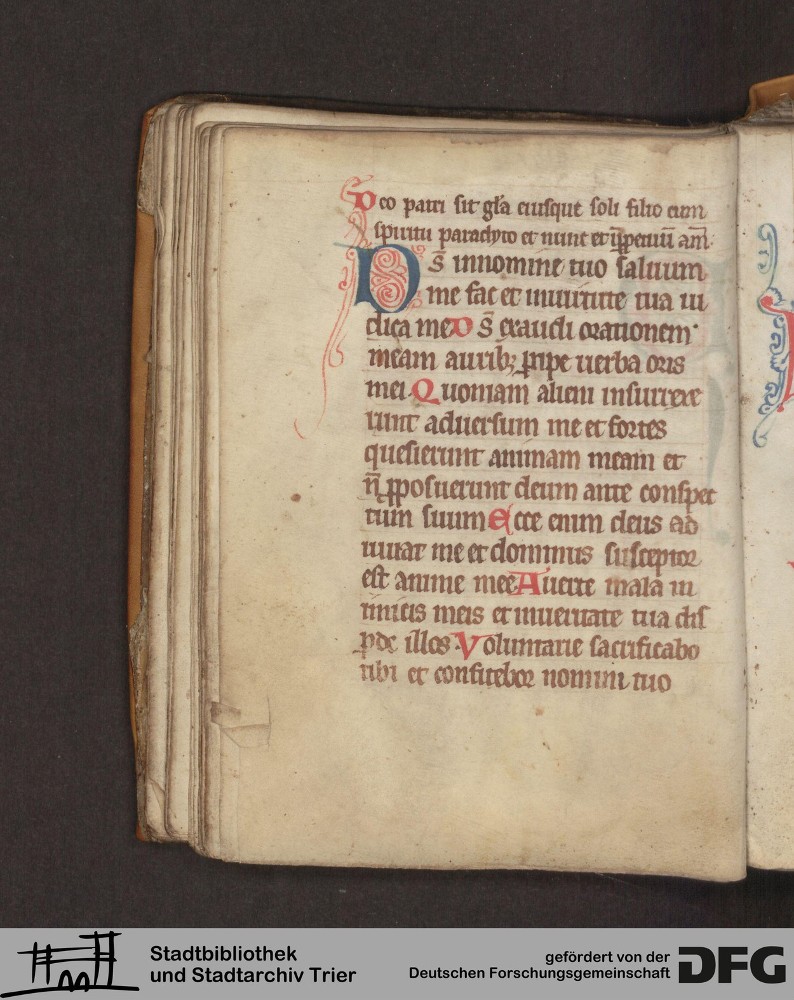 Deo patri sit gl̄a eiusque soli filio cum
spiritu paraclyto et nunc et ī ꝑpetuū am̄.
Ds̄ in nomine tuo saluum
me fac et in uirtute tua iu
dica me Ds̄ exaudi orationem
meam auribꝫ ꝑcipe uerba oris
mei. Quoniam alieni insurrexe
runt aduersum me et fortes
quesierunt animam meam et
n̄ ꝓposuerunt deum ante conspec
tum suum Ecce enim deus ad
iuuat me et dominus susceptor
est anime mee Auerte mala in
imicis meis et in ueritate tua dis
ꝑde illos. Voluntarie sacrificabo
tibi et confitebor nomini tuo
Stadtbibliothek
und Stadtarchiv Trier
gefördert von der
Deutschen Forschungsgemeinschaft
DFG